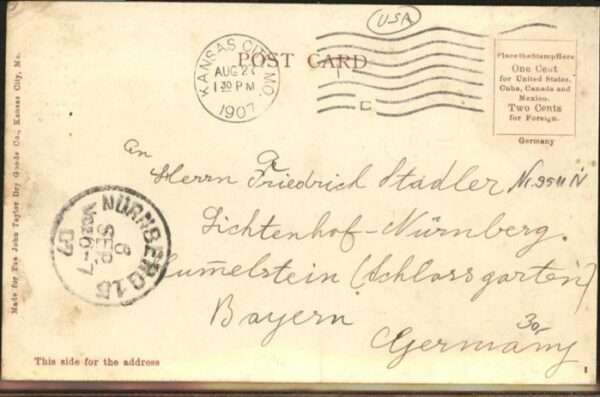 USA
POST CARD
KANSAS CITY, MO.
AUG 27
1 30 PM
1907
Place the Stamp Here
One Cent
for United States,
Cuba, Canada and
Mexico.
Two Cents
for Foreign.
Germany
Made for The John Taylor Dry Goods Co., Kansas City, Mo.
An
Herrn Friedrich Stadler
Lichtenhof-Nürnberg.
Hum̅elstein (Schlossgarten)
Bayern
30,
Germany
NÜRNBERG 15
8
SEP.
6-7
07
This side for the address